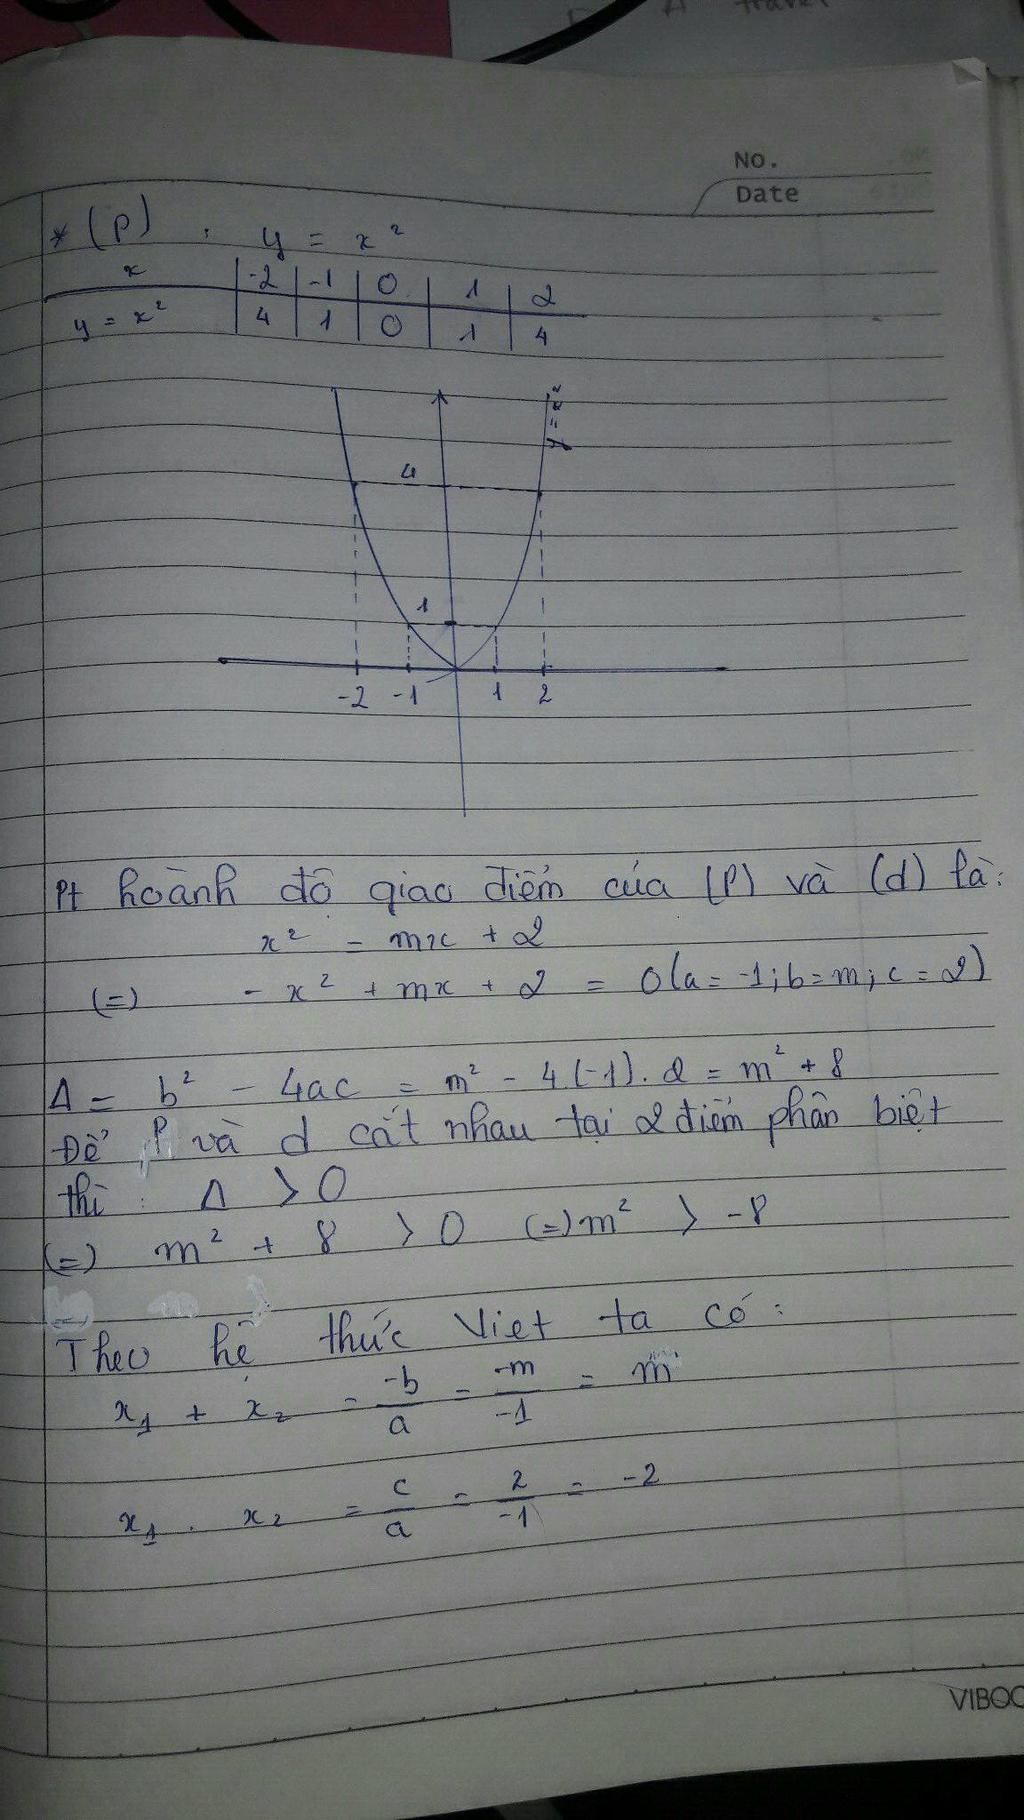 No.
Date
* (P) : y = x²
x | -2 | -1 | 0 | 1 | 2
y = x² | 4 | 1 | 0 | 1 | 4
y = x²
4
1
-2 -1 1 2
Pt hoành độ giao điểm của (P) và (d) là:
x² = mx + 2
(=) - x² + mx + 2 = 0 (a = -1; b = m; c = 2)
Δ = b² - 4ac = m² - 4(-1). 2 = m² + 8
Để P và d cắt nhau tại 2 điểm phân biệt
thì : Δ > 0
(=) m² + 8 > 0 (=) m² > -8
Theo hệ thức Viet ta có :
x₁ + x₂ = -b/a = -m/-1 = m
x₁ . x₂ = c/a = 2/-1 = -2